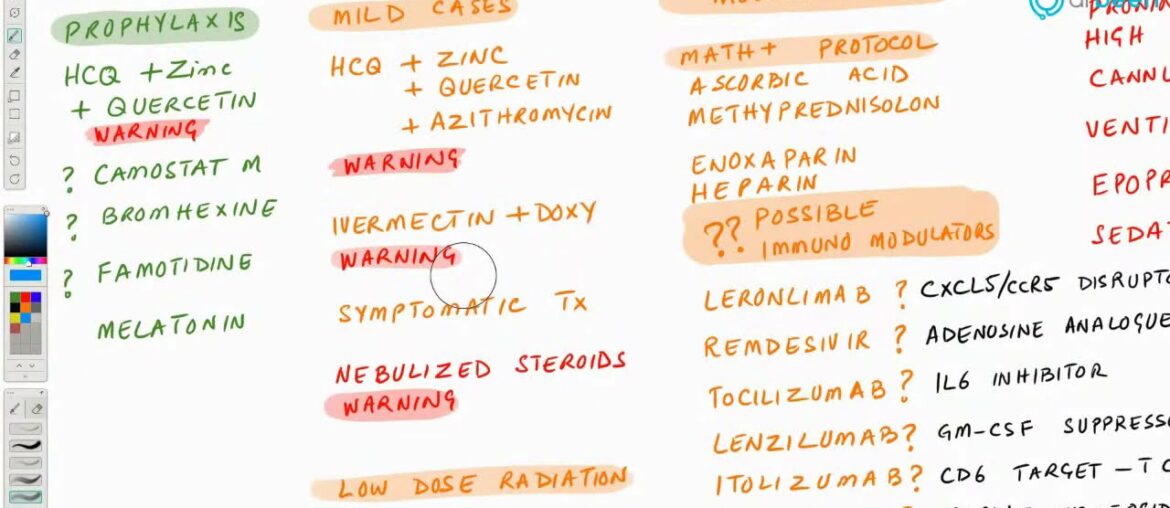 PROPHYLAXIS
HCQ + Zinc
+ QUERCETIN
WARNING
? CAMOSTAT M
? BROMHEXINE
? FAMOTIDINE
MELATONIN
MILD CASES
HCQ + ZINC
+ QUERCETIN
+ AZITHROMYCIN
WARNING
IVERMECTIN + DOXY
WARNING
SYMPTOMATIC TX
NEBULIZED STEROIDS
WARNING
LOW DOSE RADIATION
MATH+ PROTOCOL
ASCORBIC ACID
METHYPREDNISOLON
ENOXAPARIN
HEPARIN
?? POSSIBLE
IMMUNO MODULATORS
LERONLIMAB ? CXCL5/CCR5 DISRUPTO
REMDESIVIR ? ADENOSINE ANALOGUE
TOCILIZUMAB ? IL6 INHIBITOR
LENZILUMAB ? GM-CSF SUPPRESSO
ITOLIZUMAB ? CD6 TARGET - TC
HIGH
CANNU
VENTI
EPOPR
SEDAT